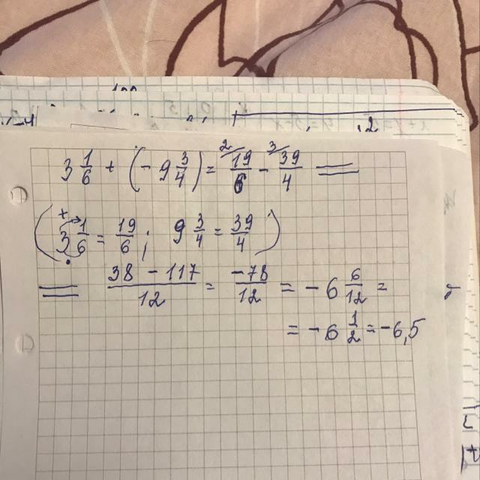 3 1/6 + (- 9 3/4) = 2/ 19/6 - 3/ 39/4 =
( 3 1/6 = 19/6 ; 9 3/4 = 39/4 )
= 38 - 117/12 = -78/12 = - 6 6/12 =
= - 6 1/2 = - 6,5